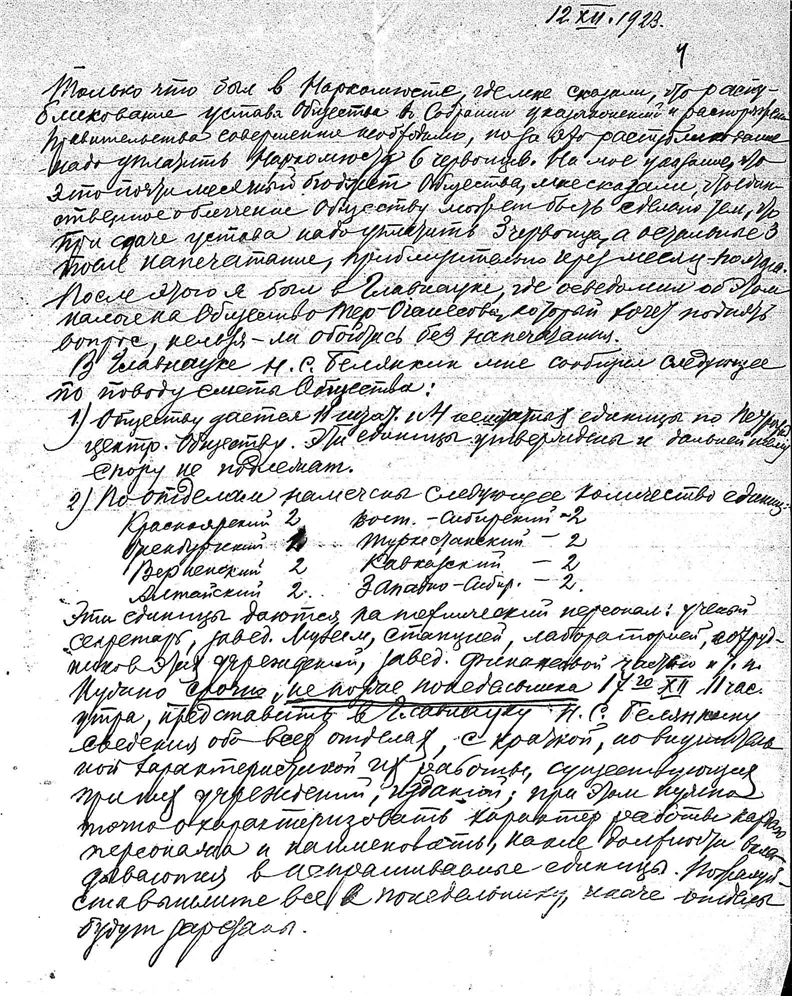 12 XII. 1923.
4
Только что был в Наркомюсте, где мне сказали, что распу-
бликование устава Общества в Собрании узаконений и распоряжений
правительства совершенно необходимо, но за это распубликование
надо уплатить Наркомюсту 6 червонцев. На мое указание, что
это почти месячный бюджет Общества, мне сказали, что един-
ственное облегчение Обществу может быть сделано тем, что
при сдаче устава надо уплатить 3 червонца, а остальные 3
после напечатания, приблизительно через месяц-полтора.
После этого я был в Главнауке, где осведомил об этом
Общество Тер-Оганесова, который хочет поднять
вопрос, нельзя-ли обойтись без напечатания.
В Главнауке Н. С. Белянкин мне сообщил следующее
по поводу сметы Общества:
1) Обществу дается 11 штат. и 4 нештатных единицы по
центр. Обществу. Эти единицы утверждены и дальнейшему
спору не подлежат.
2) По отделам намечены следующее количество единиц:
Красноярский 2 Вост.-Сибирский - 2
Оренбургский 2 Туркестанский - 2
2 Кавказский - 2
Алтайский 2. Западно-Сибир. - 2.
Эти единицы даются на технический персонал: ученый
секретарь, завед. Музеем, станцией, лабораторией, сотруд-
ников этих учреждений, завед. финансовой частью и т. п.
Нужно срочно, не позже понедельника 17го XII 11 час.
утра, представить в Главнауку Н. С. Белянкину
сведения обо всех отделах, с краткой, но внушитель-
ной характеристикой их работы, существующих
при них учреждений, изданий; при этом нужно
точно охарактеризовать характер работы
персонала и наименовать, какие должности вкла-
дываются в испрашиваемые единицы. Пожалуй-
ста вышлите все к понедельнику, иначе отделы
будут зарезаны.